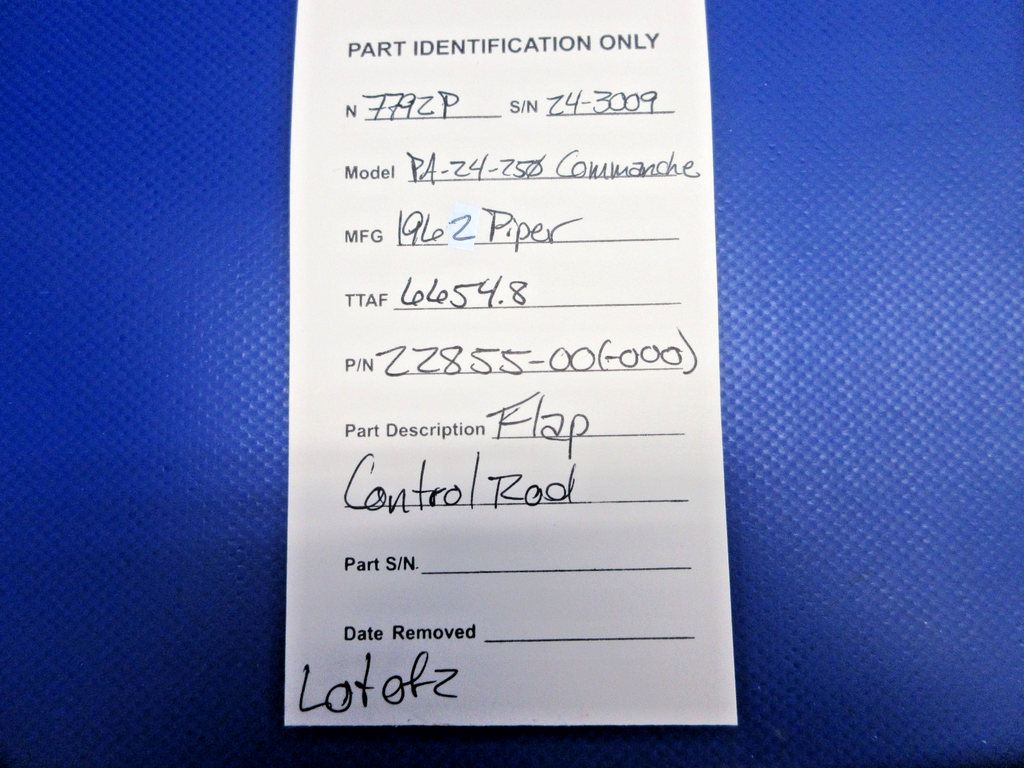 PART IDENTIFICATION ONLY
N 7792P S/N 24-3009
Model PA-24-250 Commanche
MFG 1962 Piper
TTAF 6654.8
P/N 22855-00(-000)
Part Description Flap
Control Rod
Part S/N.
Date Removed
Lot of 2